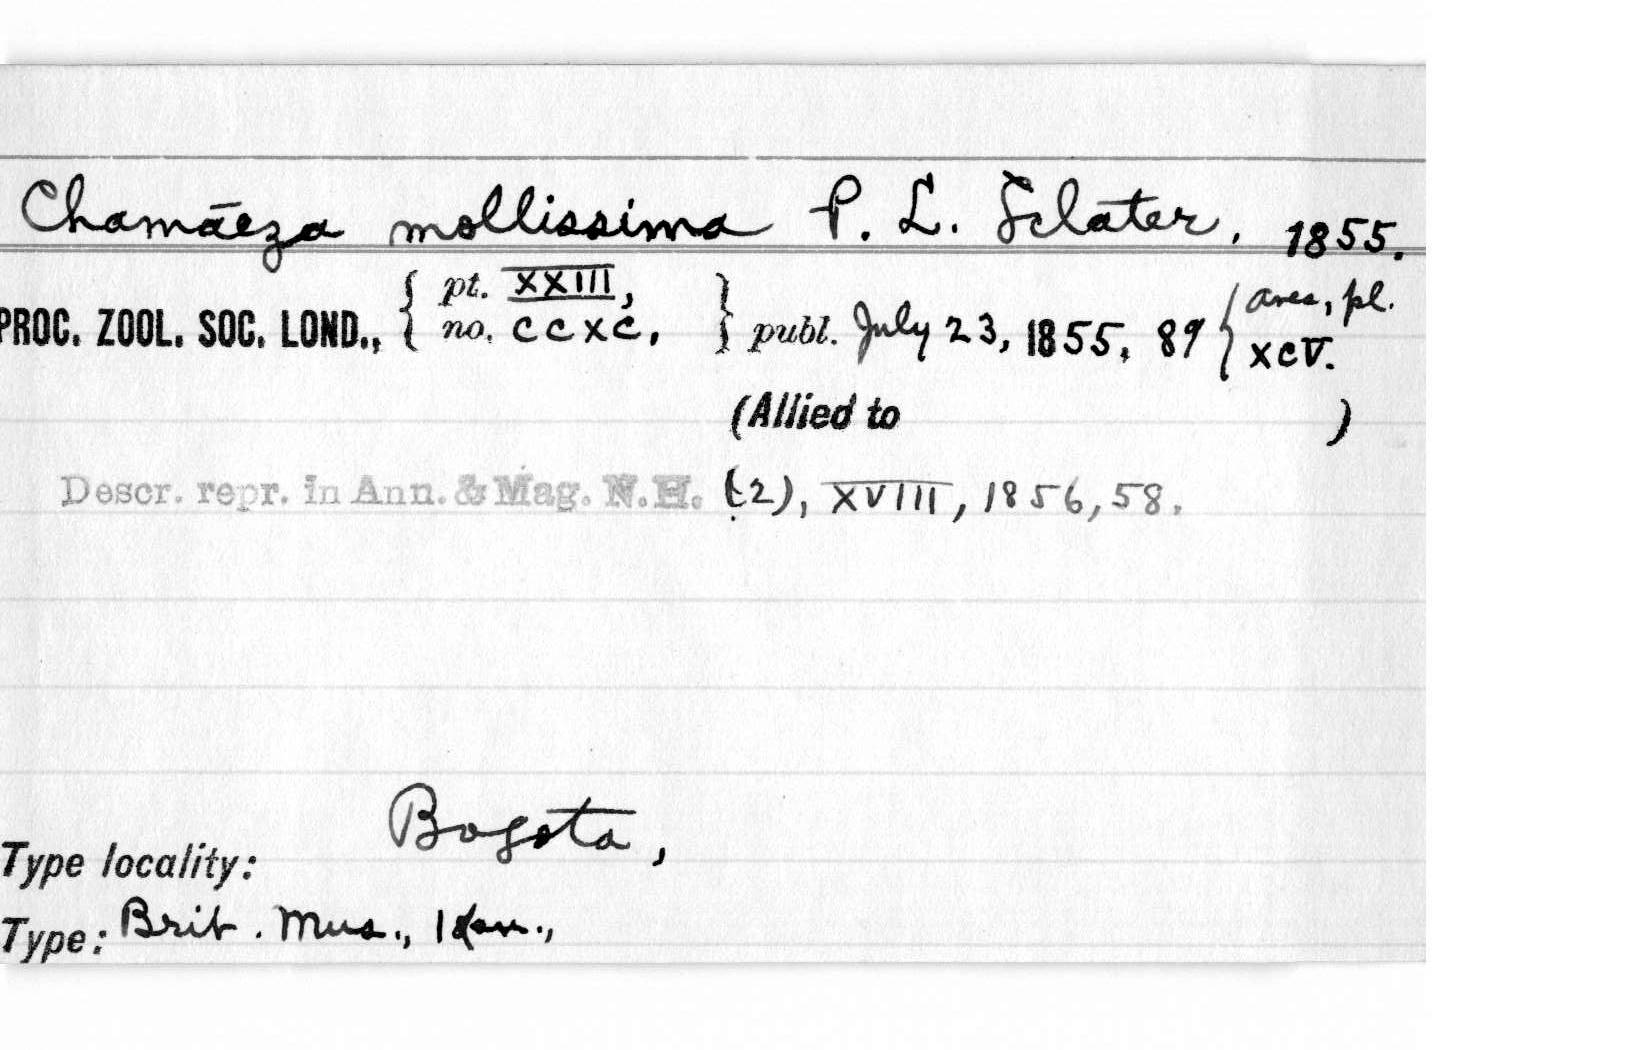 Chamāeza mollissima P. L. Sclater, 1855.
PROC. ZOOL. SOC. LOND., { pt. XXIII, no. CCXC, } publ. July 23, 1855, 89 { aves, pl. XCV.
(Allied to )
Descr. repr. in Ann. & Mag. N.H. (2), XVIII, 1856, 58.
Type locality: Bogota,
Type: Brit. Mus.,